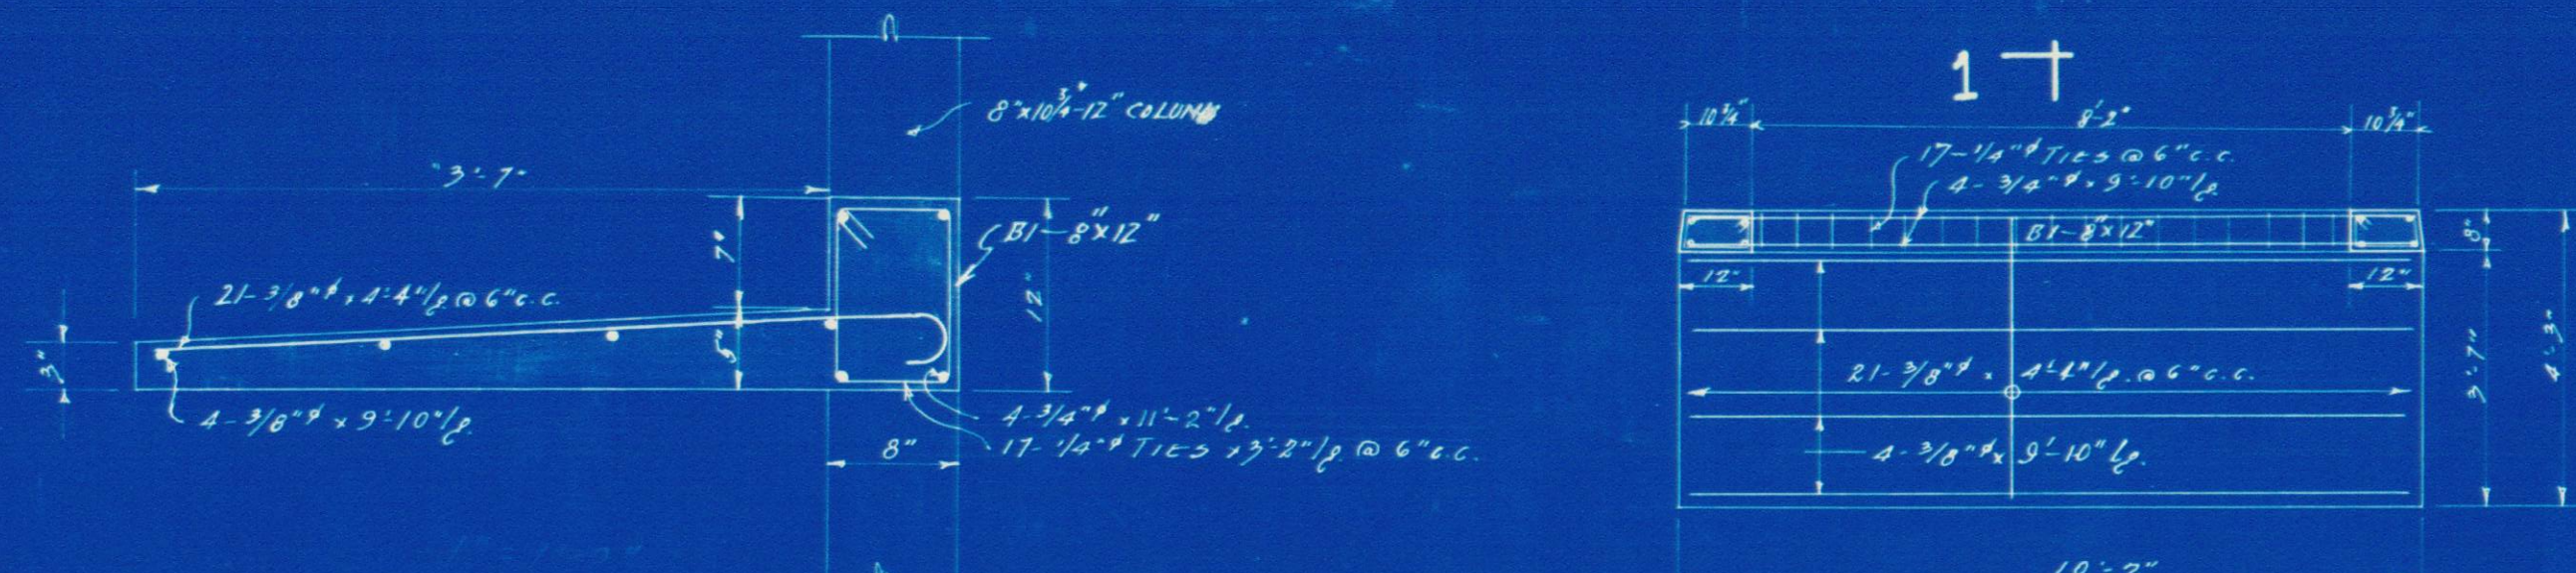 8"x10 3/4"-12" COLUMN
3'-7"
7"
B1-8"x12"
12"
21-3/8"ø x 4'-4"lg. @ 6"c.c.
3"
5"
4-3/8"ø x 9'-10"lg.
4-3/4"ø x 11'-2"lg.
17-1/4"ø TIES x 3'-2"lg. @ 6"c.c.
8"
1
10 3/4"
8'-2"
10 3/4"
17-1/4"ø TIES @ 6"c.c.
4-3/4"ø x 9'-10"lg.
B1-8"x12"
8"
12"
12"
21-3/8"ø x 4'-4"lg. @ 6"c.c.
3'-7"
4'-3"
4-3/8"ø x 9'-10"lg.